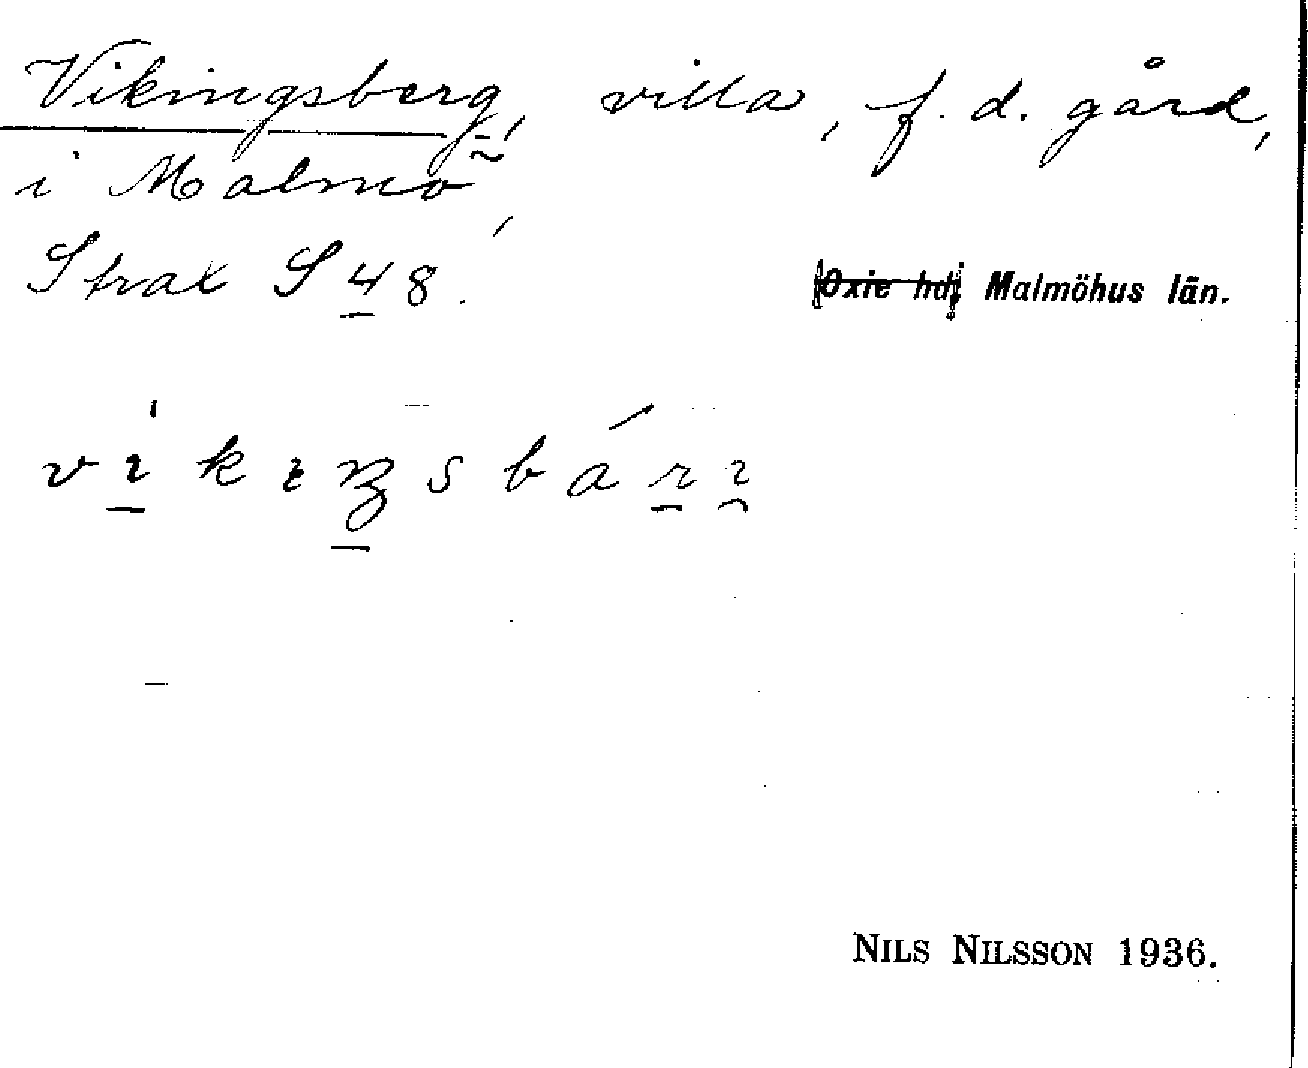 Vikingsberg, villa, f. d. gård,
i Malmö
Strax S 48.
Oxie hd, Malmöhus län.
NILS NILSSON 1936.